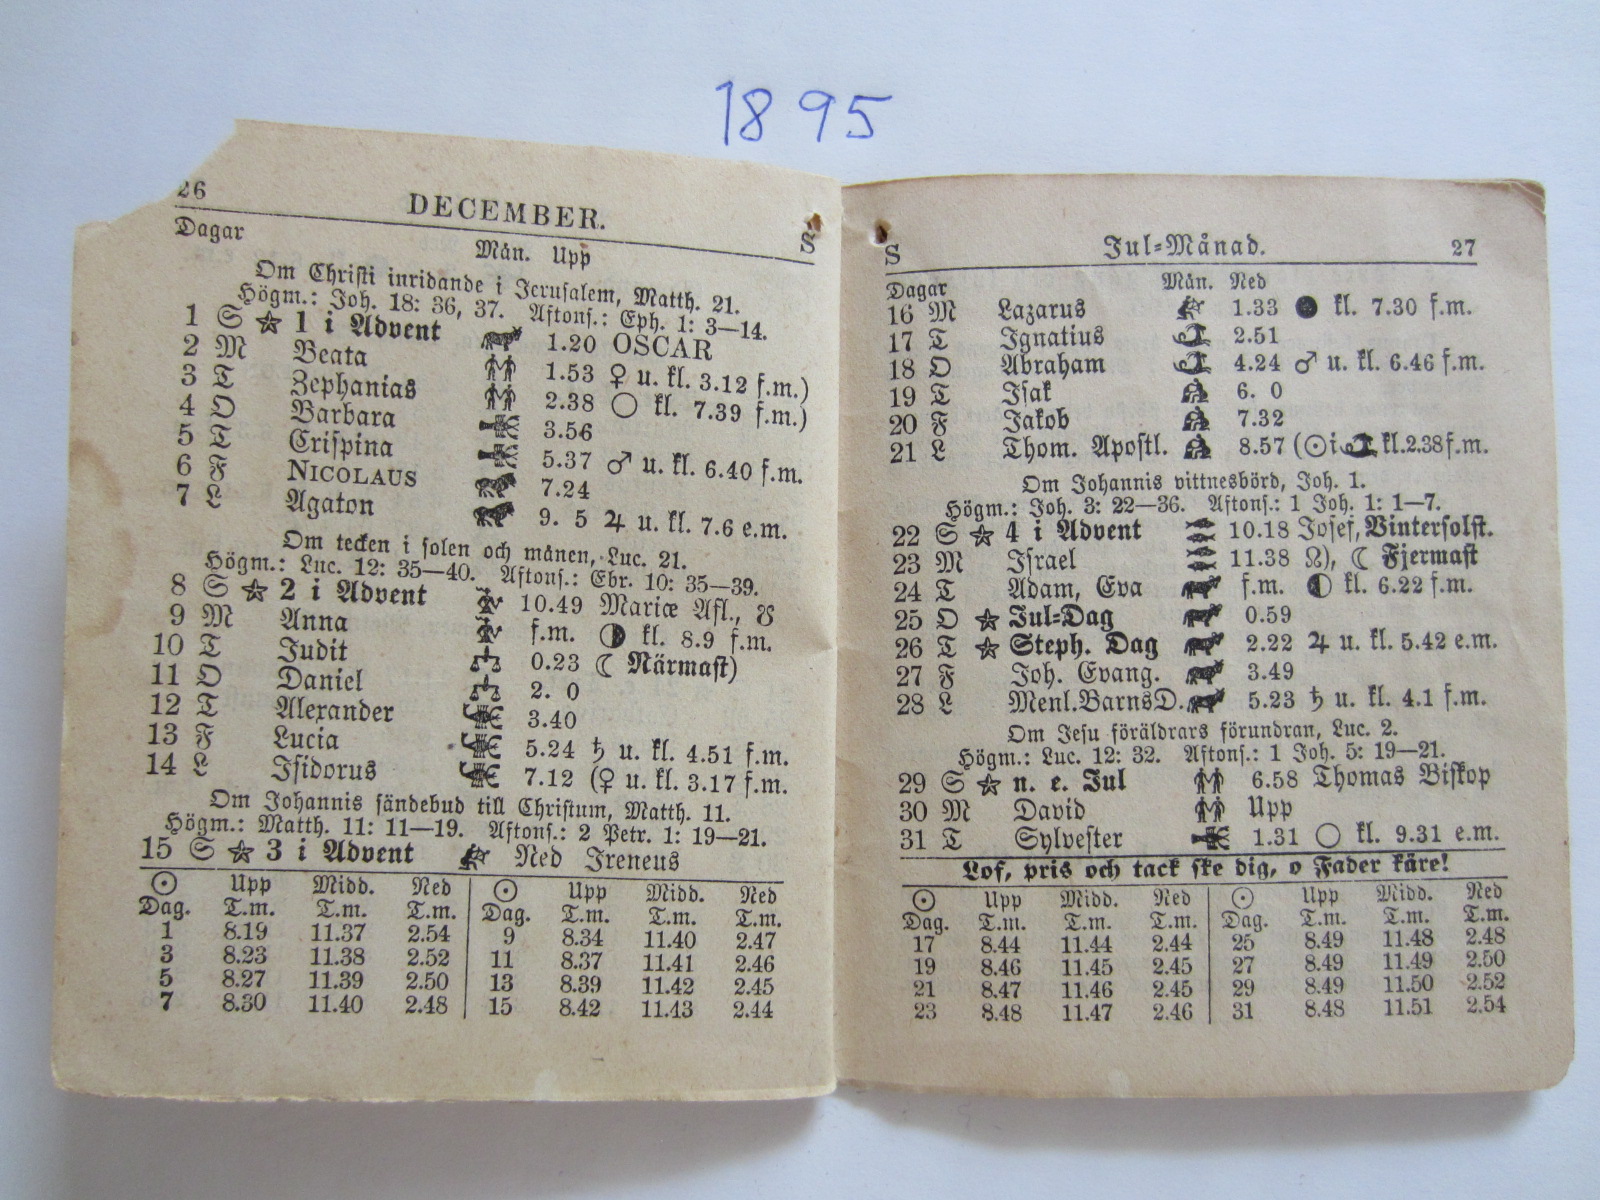 1895
26 DECEMBER.
Dagar Mån. Upp S
Om Christi inridande i Jerusalem, Matth. 21.
Högm.: Joh. 18: 36, 37. Aftons.: Eph. 1: 3—14.
1 S 1 i Advent 1.20 OSCAR
2 M Beata 1.53 ♀ u. kl. 3.12 f.m.)
3 T Zephanias 2.38 ○ kl. 7.39 f.m.)
4 O Barbara 3.56
5 T Crispina 5.37 ♂ u. kl. 6.40 f.m.
6 F NICOLAUS 7.24
7 L Agaton 9. 5 ♃ u. kl. 7.6 e.m.
Om tecken i solen och månen, Luc. 21.
Högm.: Luc. 12: 35—40. Aftons.: Ebr. 10: 35—39.
8 S 2 i Advent 10.49 Mariæ Afl., ☋
9 M Anna f.m. ◑ kl. 8.9 f.m.
10 T Judit 0.23 ☾ Närmast)
11 O Daniel 2. 0
12 T Alexander 3.40
13 F Lucia 5.24 ♄ u. kl. 4.51 f.m.
14 L Isidorus 7.12 (♀ u. kl. 3.17 f.m.
Om Johannis sändebud till Christum, Matth. 11.
Högm.: Matth. 11: 11—19. Aftons.: 2 Petr. 1: 19—21.
15 S 3 i Advent Ned Ireneus
☉ Upp Midd. Ned ☉ Upp Midd. Ned
Dag. T.m. T.m. T.m. Dag. T.m. T.m. T.m.
1 8.19 11.37 2.54 9 8.34 11.40 2.47
3 8.23 11.38 2.52 11 8.37 11.41 2.46
5 8.27 11.39 2.50 13 8.39 11.42 2.45
7 8.30 11.40 2.48 15 8.42 11.43 2.44
S Jul-Månad. 27
Dagar Mån. Ned
16 M Lazarus 1.33 ● kl. 7.30 f.m.
17 T Ignatius 2.51
18 O Abraham 4.24 ♂ u. kl. 6.46 f.m.
19 T Isak 6. 0
20 F Jakob 7.32
21 L Thom. Apostl. 8.57 (☉ i kl.2.38 f.m.
Om Johannis vittnesbörd, Joh. 1.
Högm.: Joh. 3: 22—36. Aftons.: 1 Joh. 1: 1—7.
22 S 4 i Advent 10.18 Josef, Vintersolst.
23 M Israel 11.38 ☊), ☾ Fjermast
24 T Adam, Eva f.m. ◐ kl. 6.22 f.m.
25 O Jul-Dag 0.59
26 T Steph. Dag 2.22 ♃ u. kl. 5.42 e.m.
27 F Joh. Evang. 3.49
28 L Menl. Barns D. 5.23 ♄ u. kl. 4.1 f.m.
Om Jesu föräldrars förundran, Luc. 2.
Högm.: Luc. 12: 32. Aftons.: 1 Joh. 5: 19—21.
29 S n. e. Jul 6.58 Thomas Biskop
30 M David Upp
31 T Sylvester 1.31 ○ kl. 9.31 e.m.
Lof, pris och tack ske dig, o Fader käre!
☉ Upp Midd. Ned ☉ Upp Midd. Ned
Dag. T.m. T.m. T.m. Dag. T.m. T.m. T.m.
17 8.44 11.44 2.44 25 8.49 11.48 2.48
19 8.46 11.45 2.45 27 8.49 11.49 2.50
21 8.47 11.46 2.45 29 8.49 11.50 2.52
23 8.48 11.47 2.46 31 8.48 11.51 2.54